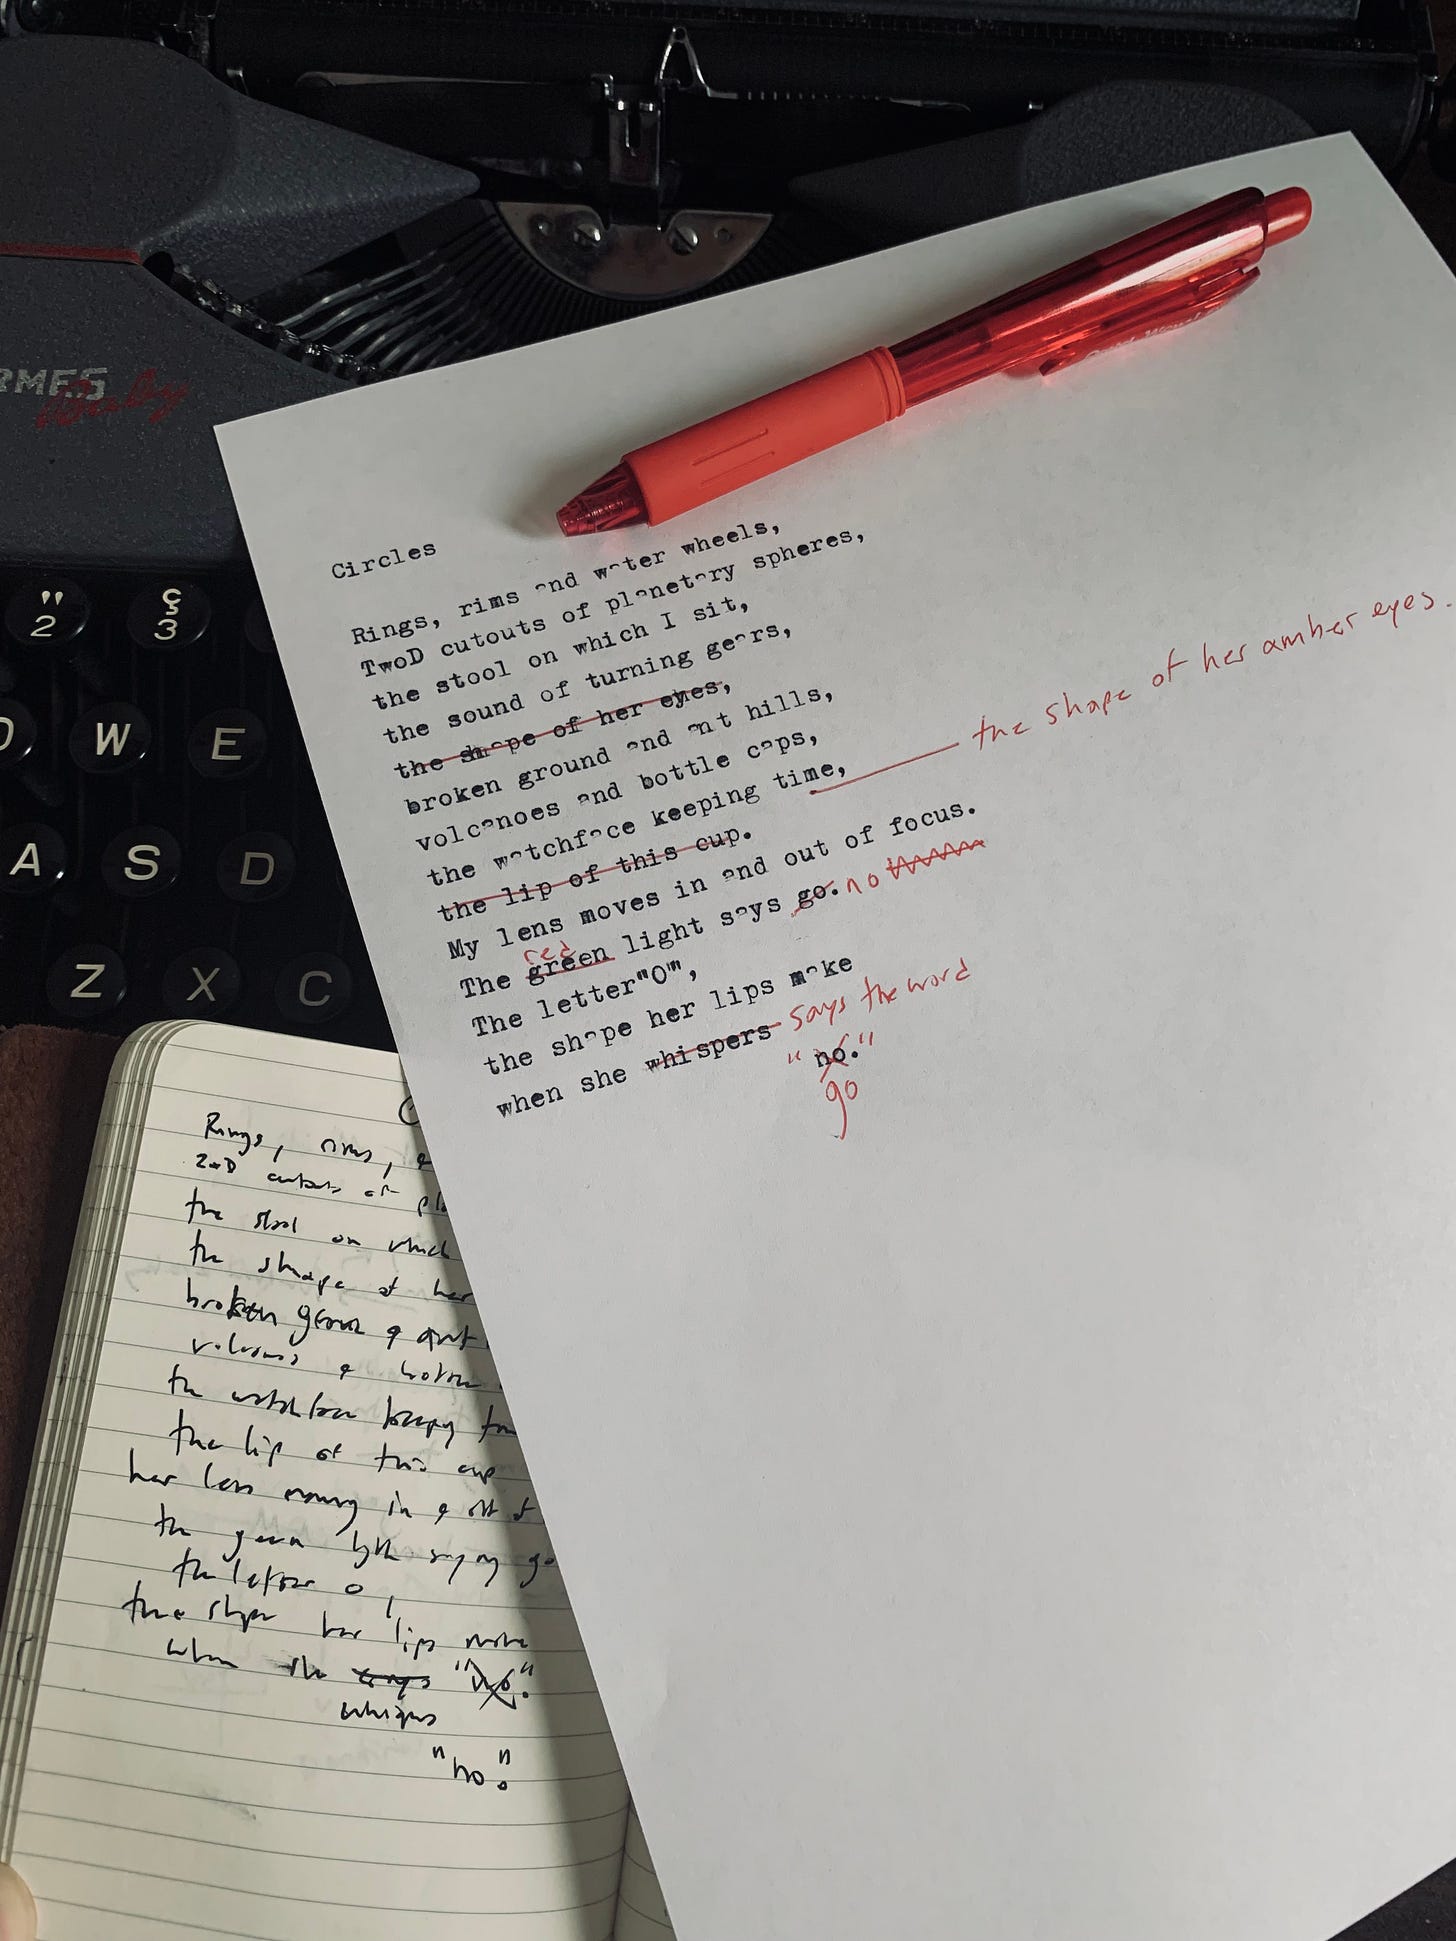 HERMES
Baby
" 2
ç 3
W E
A S D
Z X C
Circles
Rings, rims and water wheels,
TwoD cutouts of planetary spheres,
the stool on which I sit,
the sound of turning gears,
the shape of her eyes,
broken ground and ant hills,
volcanoes and bottle caps,
the watchface keeping time, the shape of her amber eyes.
the lip of this cup.
My lens moves in and out of focus.
The green red light says go. no
The letter"O",
the shape her lips make
when she whispers says the word
"no."
go
Rings, rims, &
2-D cutouts of pl
the stool on which
the shape of her
broken ground & ant
volcanos & bottle
the watchface keeping
the lip of this cup
her lens moving in & out of
the green light saying go
the letter O,
the shape her lips make
when she says "no."
whispers
"no."